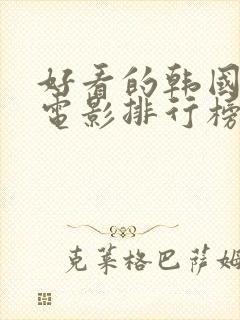 好看的韩国
电影排行榜
克莱格巴萨姆